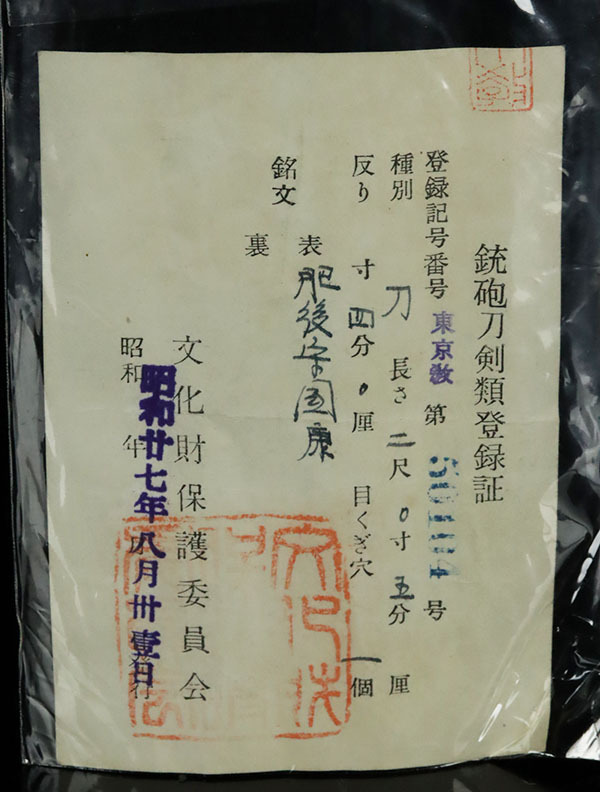 銃砲刀剣類登録証
登録記号番号 東京教 第 50104 号
種別 刀 長さ 二尺 〇寸 五分 厘
反り 寸 四分 〇厘 目くぎ穴 一個
銘文 表 肥後守国康
裏
文化財保護委員会
昭和廿七年八月卅壹日